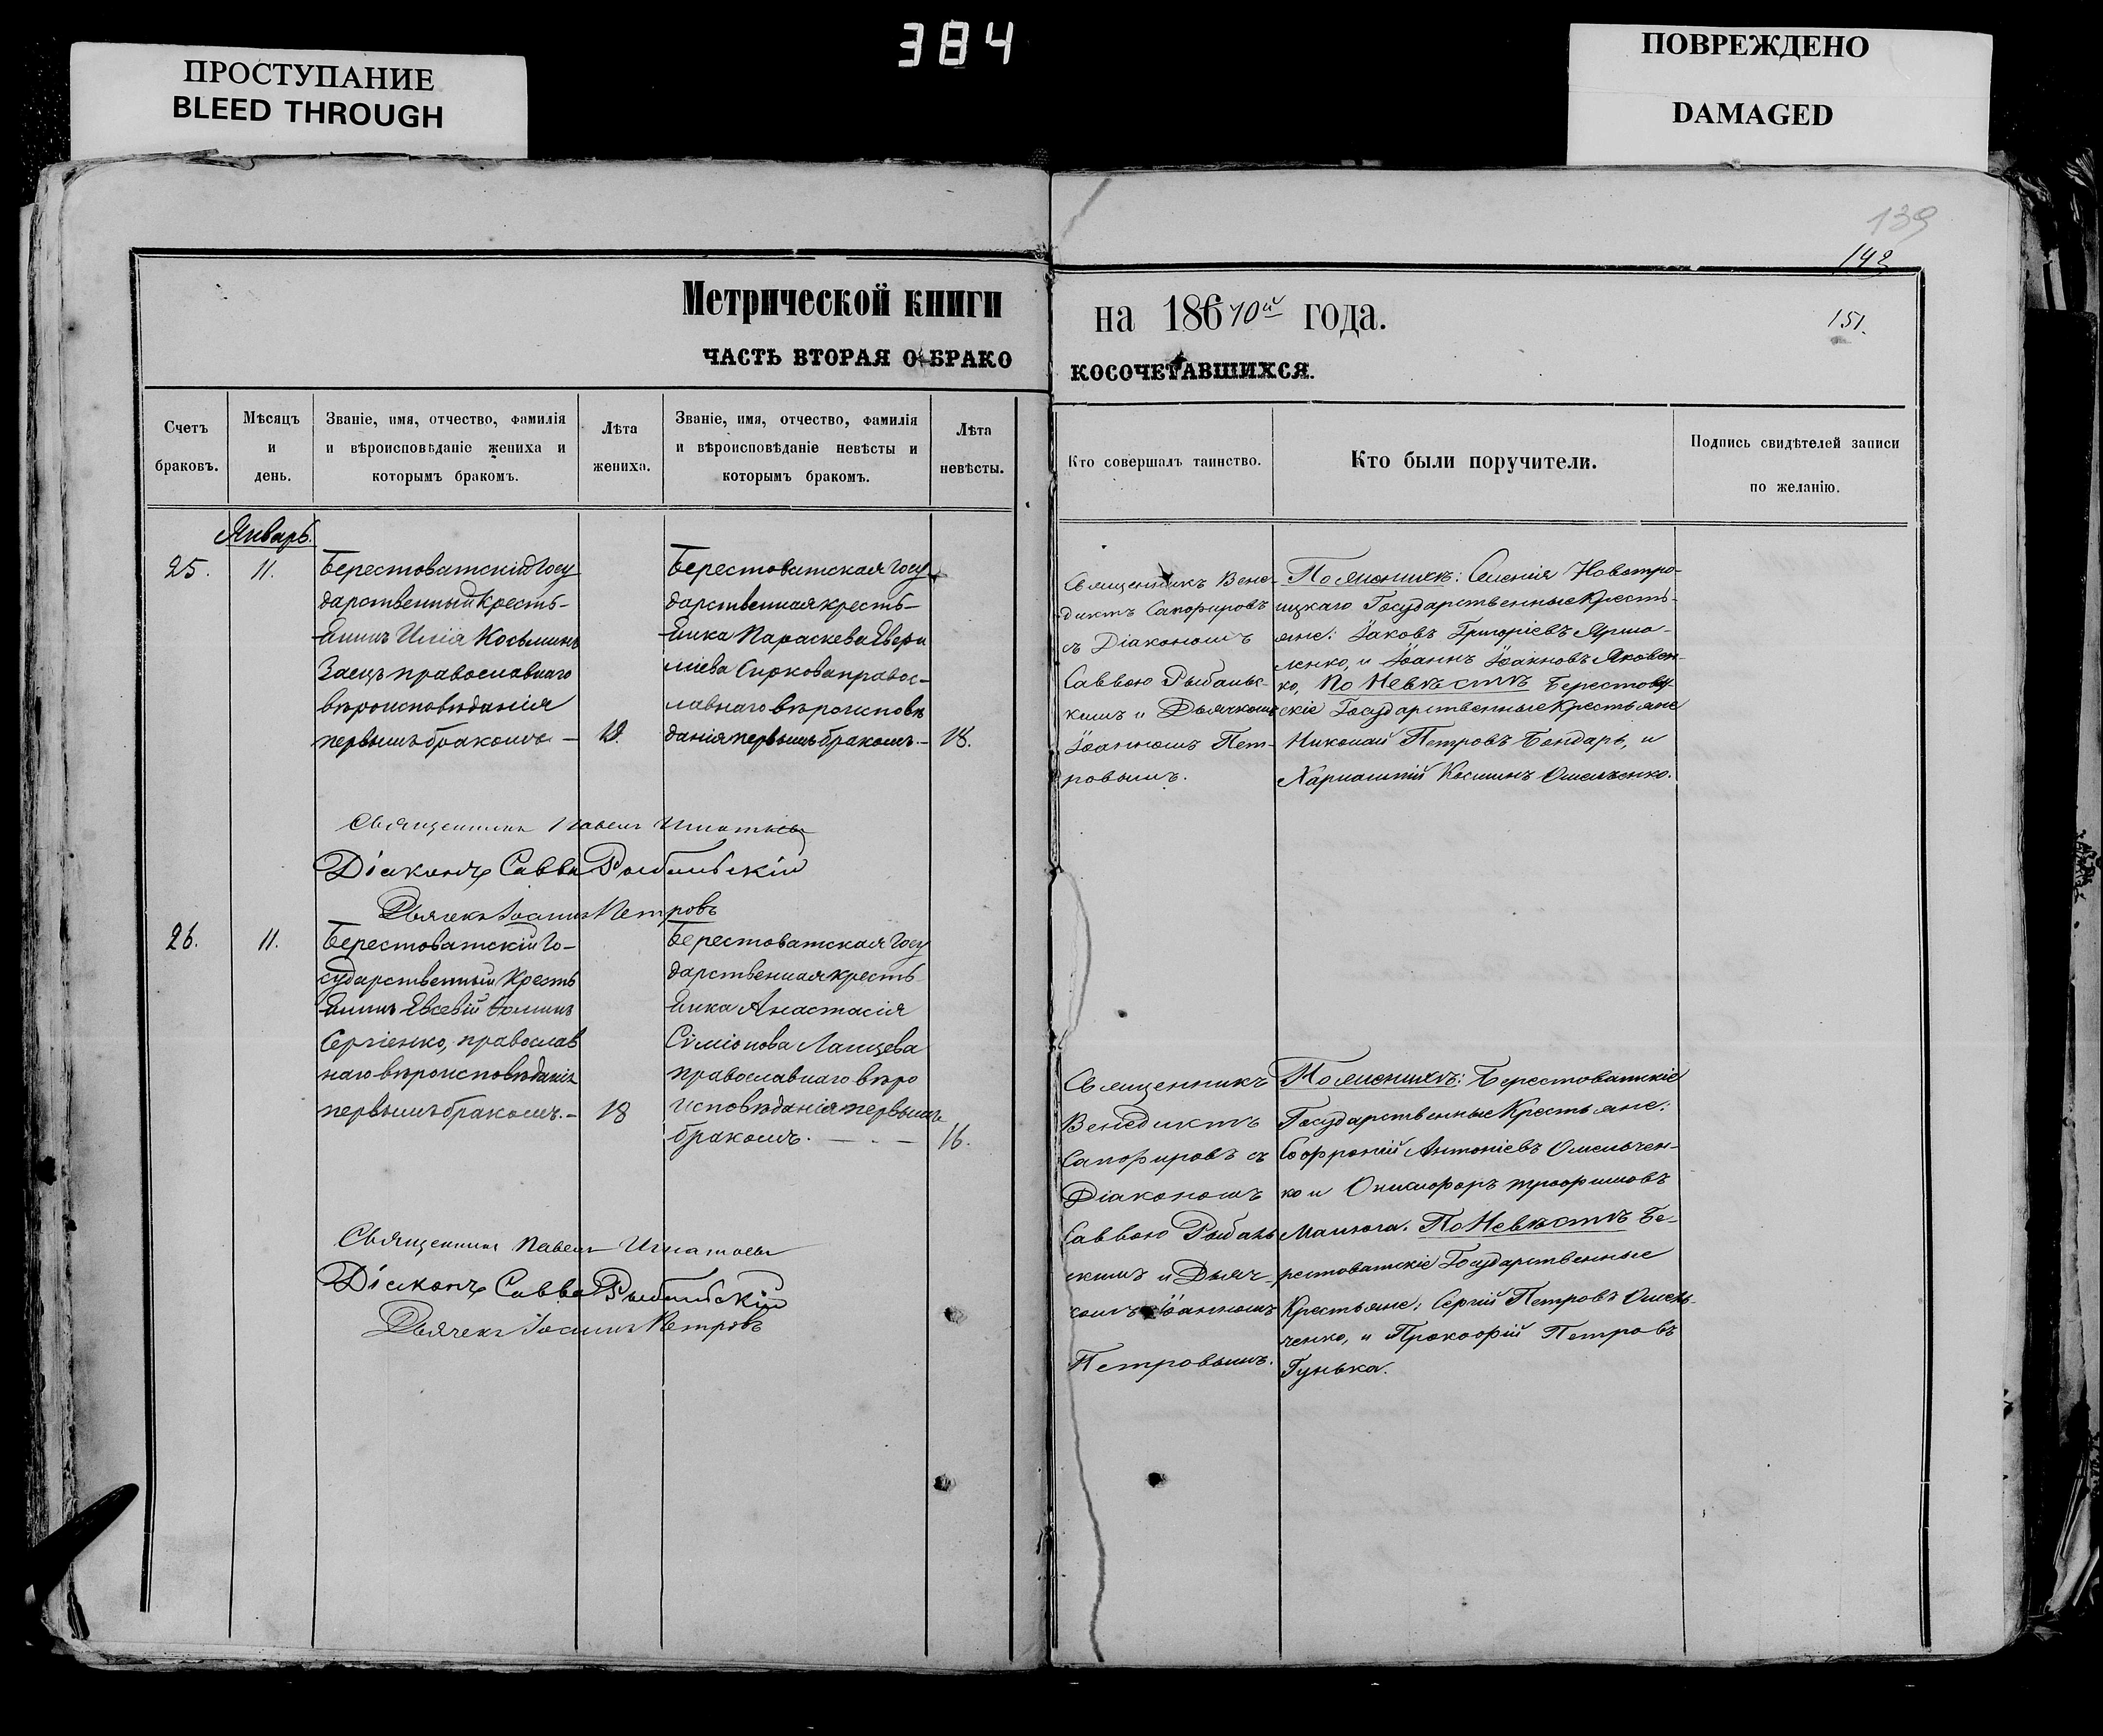 384
ПРОСТУПАНИЕ
BLEED THROUGH
ПОВРЕЖДЕНО
DAMAGED
139
142
Метрической книги
на 18670й года.
151.
ЧАСТЬ ВТОРАЯ О БРАКО
КОСОЧЕТАВШИХСЯ.
Счетъ браковъ.
Мѣсяцъ и день.
Званіе, имя, отчество, фамилія и вѣроисповѣданіе жениха и которымъ бракомъ.
Лѣта жениха.
Званіе, имя, отчество, фамилія и вѣроисповѣданіе невѣсты и которымъ бракомъ.
Лѣта невѣсты.
Кто совершалъ таинство.
Кто были поручители.
Подпись свидѣтелей записи по желанію.
Январь.
25.
11.
Берестоватскій Госу
дарственный Кресть-
янинъ Илія Косьминъ
Заецъ православнаго
вѣроисповѣданія
первымъ бракомъ —
Берестоватская Госу
дарственная кресть-
янка Параскева Евери
міева Сиркова правос-
лавнаго вѣроисповѣ
данія первымъ бракомъ. —
18.
Священникъ Вене-
диктъ Сапфировъ
съ Діакономъ
Саввою Рыбальс-
кимъ и Дьячкомъ
Іоанномъ Пет-
ровымъ.
По женихѣ: Селенія Новотро-
ицкаго Государственные Кресть-
яне: Іаковъ Григоріевъ Ярмо-
ленко, и Іоаннъ Іоанновъ Яковен-
ко, По Невѣстѣ Берестоват
скіе Государственные Крестьяне
Николай Петровъ Бондарь, и
Харлампій Косминъ Омельченко.
Священникъ Павелъ Игнатьевъ
Діаконъ Савва Рыбальскій
Дьячекъ Іоаннъ Петровъ
26.
11.
Берестоватскій Го-
сударственный Кресть
янинъ Евсевій Фоминъ
Сергіенко, православ
наго вѣроисповѣданія
первымъ бракомъ. —
18
Берестоватская Госу
дарственная кресть
янка Анастасія
Симіонова Лапцева
православнаго вѣро
исповѣданія первымъ
бракомъ. — . —
16.
Священникъ
Венедиктъ
Сапфировъ съ
Діакономъ
Саввою Рыбаль
скимъ и Дьяч-
комъ Іоанномъ
Петровымъ.
По женихѣ: Берестоватскіе
Государственные Крестьяне:
Софроній Антоніевъ Омельчен-
ко и Онисифоръ Трофимовъ
Малюга. По Невѣстѣ Бе-
рестоватскіе Государственные
Крестьяне: Сергій Петровъ Омель-
ченко, и Прокофій Петровъ
Гунька.
Священникъ Павелъ Игнатьевъ
Діаконъ Савва Рыбальскій
Дьячекъ Іоаннъ Петровъ